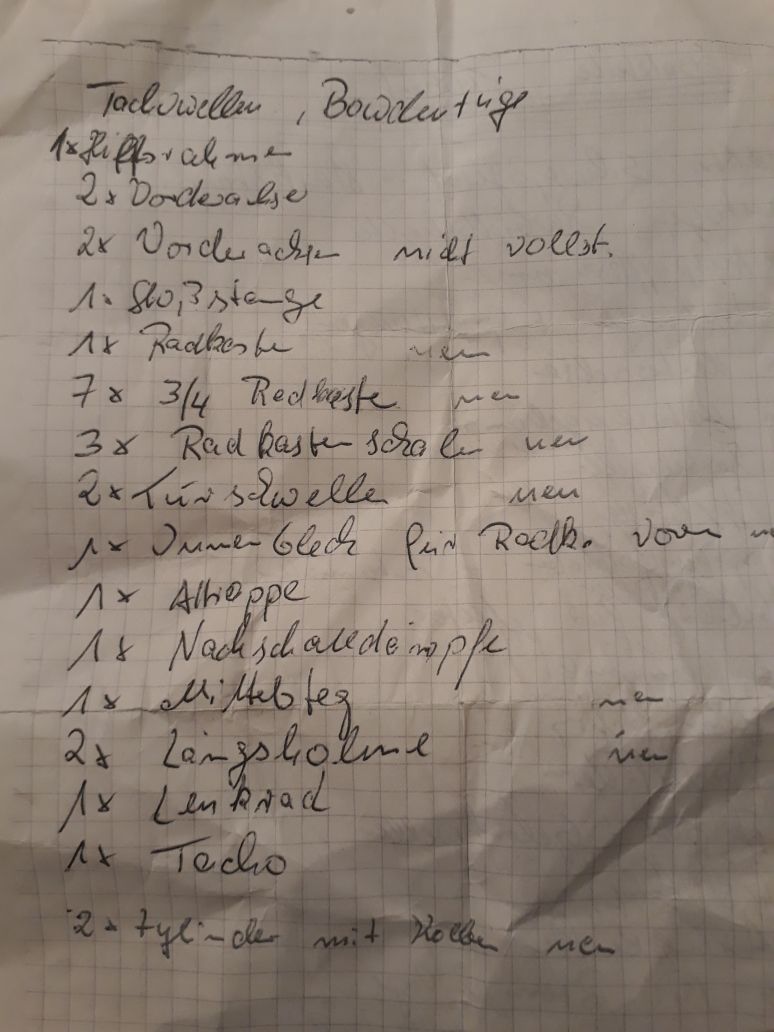 Tachowellen, Bowdenzüge
1x Hilfsrahmen
2x Vorderachse
2x Vorderachsen nicht vollst.
1x Stoßstange
1x Radkasten neu
7x 3/4 Radkasten neu
3x Radkastenschalen neu
2x Türschweller neu
1x Innenblech für Radk. vorn
1x
1x Nachschalldämpfer
1x Mittelsteg neu
2x Längsholme neu
1x Lenkrad
1x Tacho
2x Zylinder mit Kolben neu